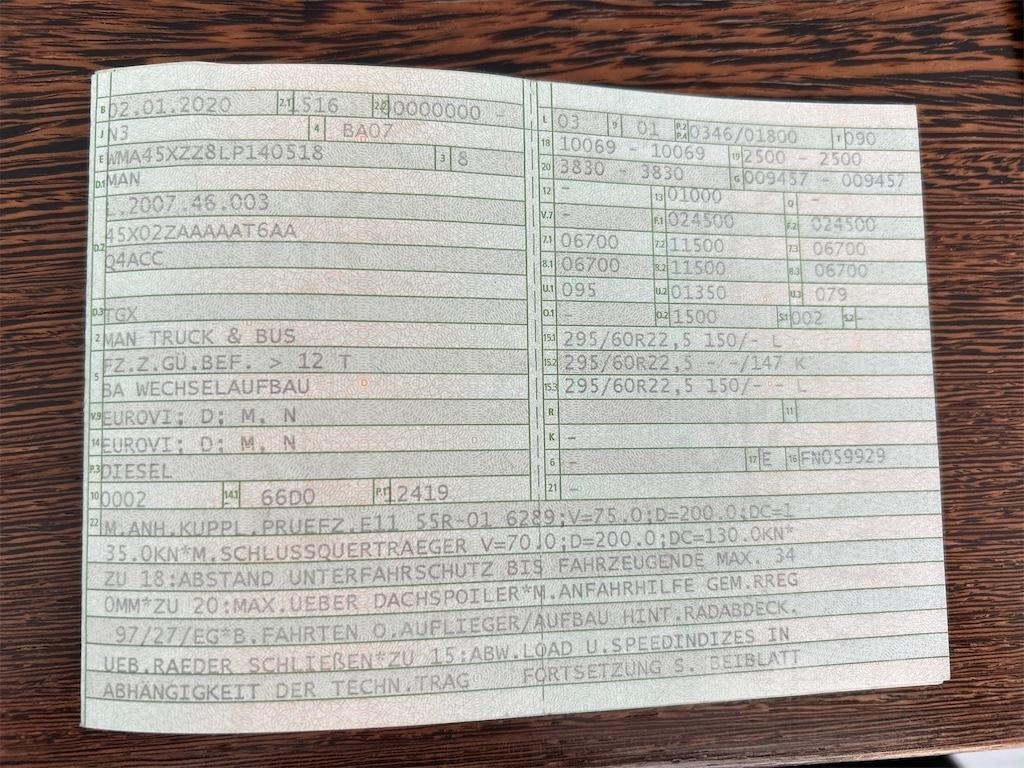 B 02.01.2020 2.1 1516 2.2 0000000 -
J N3 4 BA07
E WMA45XZZ8LP140518 3 8
D.1 MAN
L.2007.46.003
D.2 45X02ZAAAAAT6AA
Q4ACC
D.3 TGX
2 MAN TRUCK & BUS
5 FZ.Z.GÜ.BEF. > 12 T
BA WECHSELAUFBAU
V.9 EUROVI; D; M, N
14 EUROVI; D; M, N
P.3 DIESEL
10 0002 14.1 66D0 P.1 12419
L 03 9 01 P.2 P.4 0346/01800 T 090
18 10069 - 10069 19 2500 - 2500
20 3830 - 3830 G 009457 - 009457
12 - 13 01000 Q -
V.7 - F.1 024500 F.2 024500
7.1 06700 7.2 11500 7.3 06700
8.1 06700 8.2 11500 8.3 06700
U.1 095 U.2 01350 U.3 079
O.1 - O.2 1500 S.1 002 S.2 -
15.1 295/60R22,5 150/- L
15.2 295/60R22,5 - -/147 K
15.3 295/60R22,5 150/- - L
R 11
K -
6 - 17 E 16 FN059929
21 -
22 M.ANH.KUPPL.PRUEFZ.E11 55R-01 6289;V=75.0;D=200.0;DC=1
35.0KN*M.SCHLUSSQUERTRAEGER V=70.0;D=200.0;DC=130.0KN*
ZU 18:ABSTAND UNTERFAHRSCHUTZ BIS FAHRZEUGENDE MAX. 34
0MM*ZU 20:MAX.UEBER DACHSPOILER*M.ANFAHRHILFE GEM.RREG
97/27/EG*B.FAHRTEN O.AUFLIEGER/AUFBAU HINT.RADABDECK.
UEB.RAEDER SCHLIEẞEN*ZU 15:ABW.LOAD U.SPEEDINDIZES IN
ABHÄNGIGKEIT DER TECHN.TRAG FORTSETZUNG S. BEIBLATT